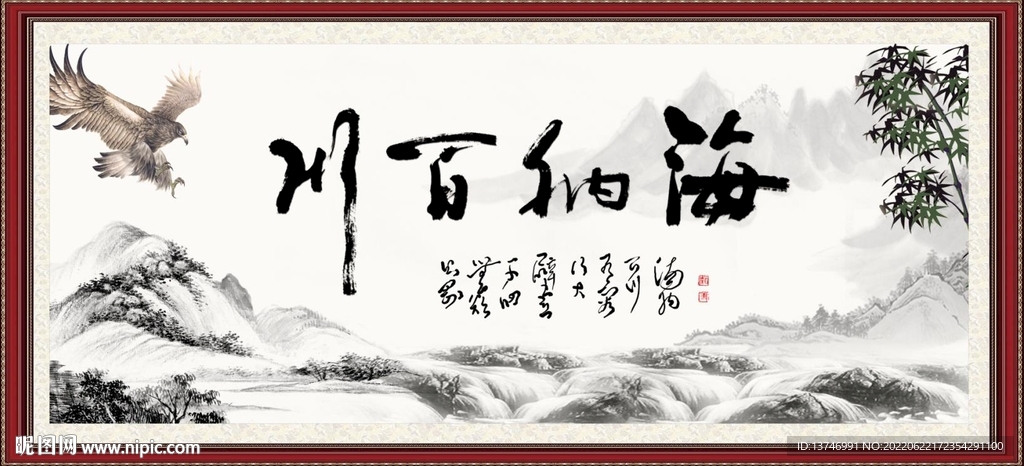 海纳百川
海纳
百川
有容
乃大
壁立
千仞
無欲
则刚
昵图网 www.nipic.com
ID:13746991 NO:20220622172354291100